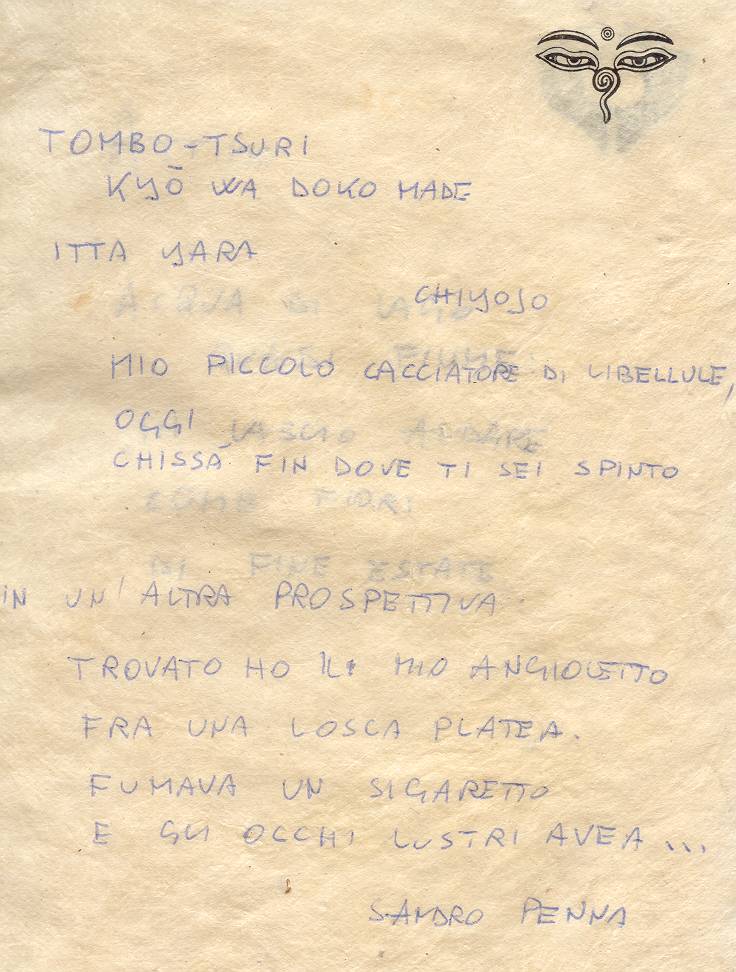 TOMBO-TSURI
KYŌ WA DOKO MADE
ITTA YARA
CHIYOJO
MIO PICCOLO CACCIATORE DI LIBELLULE,
OGGI
CHISSÀ FIN DOVE TI SEI SPINTO
IN UN' ALTRA PROSPETTIVA
TROVATO HO IL MIO ANGIOLETTO
FRA UNA LOSCA PLATEA.
FUMAVA UN SIGARETTO
E GLI OCCHI LUSTRI AVEA...
SANDRO PENNA